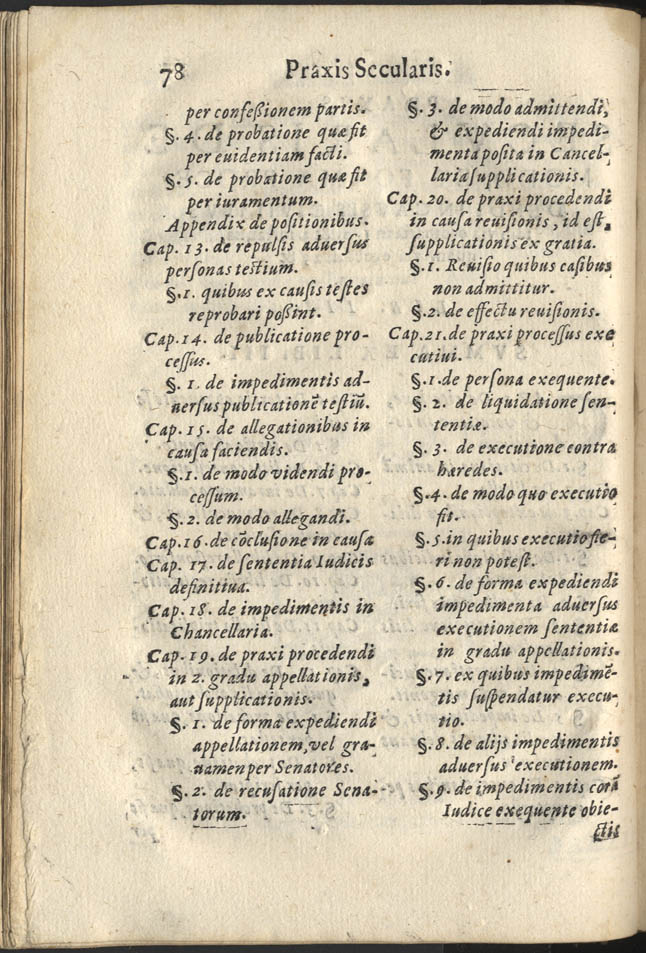 78 Praxis Secularis.
per confeßionem partis.
§. 4. de probatione quæ fit
per euidentiam facti.
§. 5. de probatione quæ fit
per iuramentum.
Appendix de positionibus.
Cap. 13. de repulsis aduersus
personas testium.
§.1. quibus ex causis testes
reprobari poßint.
Cap. 14. de publicatione pro-
cessus.
§. 1. de impedimentis ad-
uersus publicationẽ testiũ.
Cap. 15. de allegationibus in
causa faciendis.
§.1. de modo videndi pro-
cessum.
§. 2. de modo allegandi.
Cap. 16. de cõclusione in causa
Cap. 17. de sententia Iudicis
definitiua.
Cap. 18. de impedimentis in
Chancellaria.
Cap. 19. de praxi procedendi
in 2. gradu appellationis,
aut supplicationis.
§. 1. de forma expediendi
appellationem, vel gra-
uamen per Senatores.
§. 2. de recusatione Sena-
torum.
§. 3. de modo admittendi,
& expediendi impedi-
menta posita in Cancel-
laria supplicationis.
Cap. 20. de praxi procedendi
in causa reuisionis, id est,
supplicationis ex gratia.
§.1. Reuisio quibus casibus
non admittitur.
§.2. de effectu reuisionis.
Cap. 21. de praxi processus exe
cutiui.
§.1. de persona exequente.
§. 2. de liquidatione sen-
tentiæ.
§. 3. de executione contra
hæredes.
§.4. de modo quo executio
fit.
§. 5. in quibus executio fie-
ri non potest.
§. 6. de forma expediendi
impedimenta aduersus
executionem sententiæ
in gradu appellationis.
§. 7. ex quibus impedimẽ-
tis suspendatur execu-
tio.
§. 8. de alijs impedimentis
aduersus executionem.
§. 9. de impedimentis corã
Iudice exequente obie-
ctis